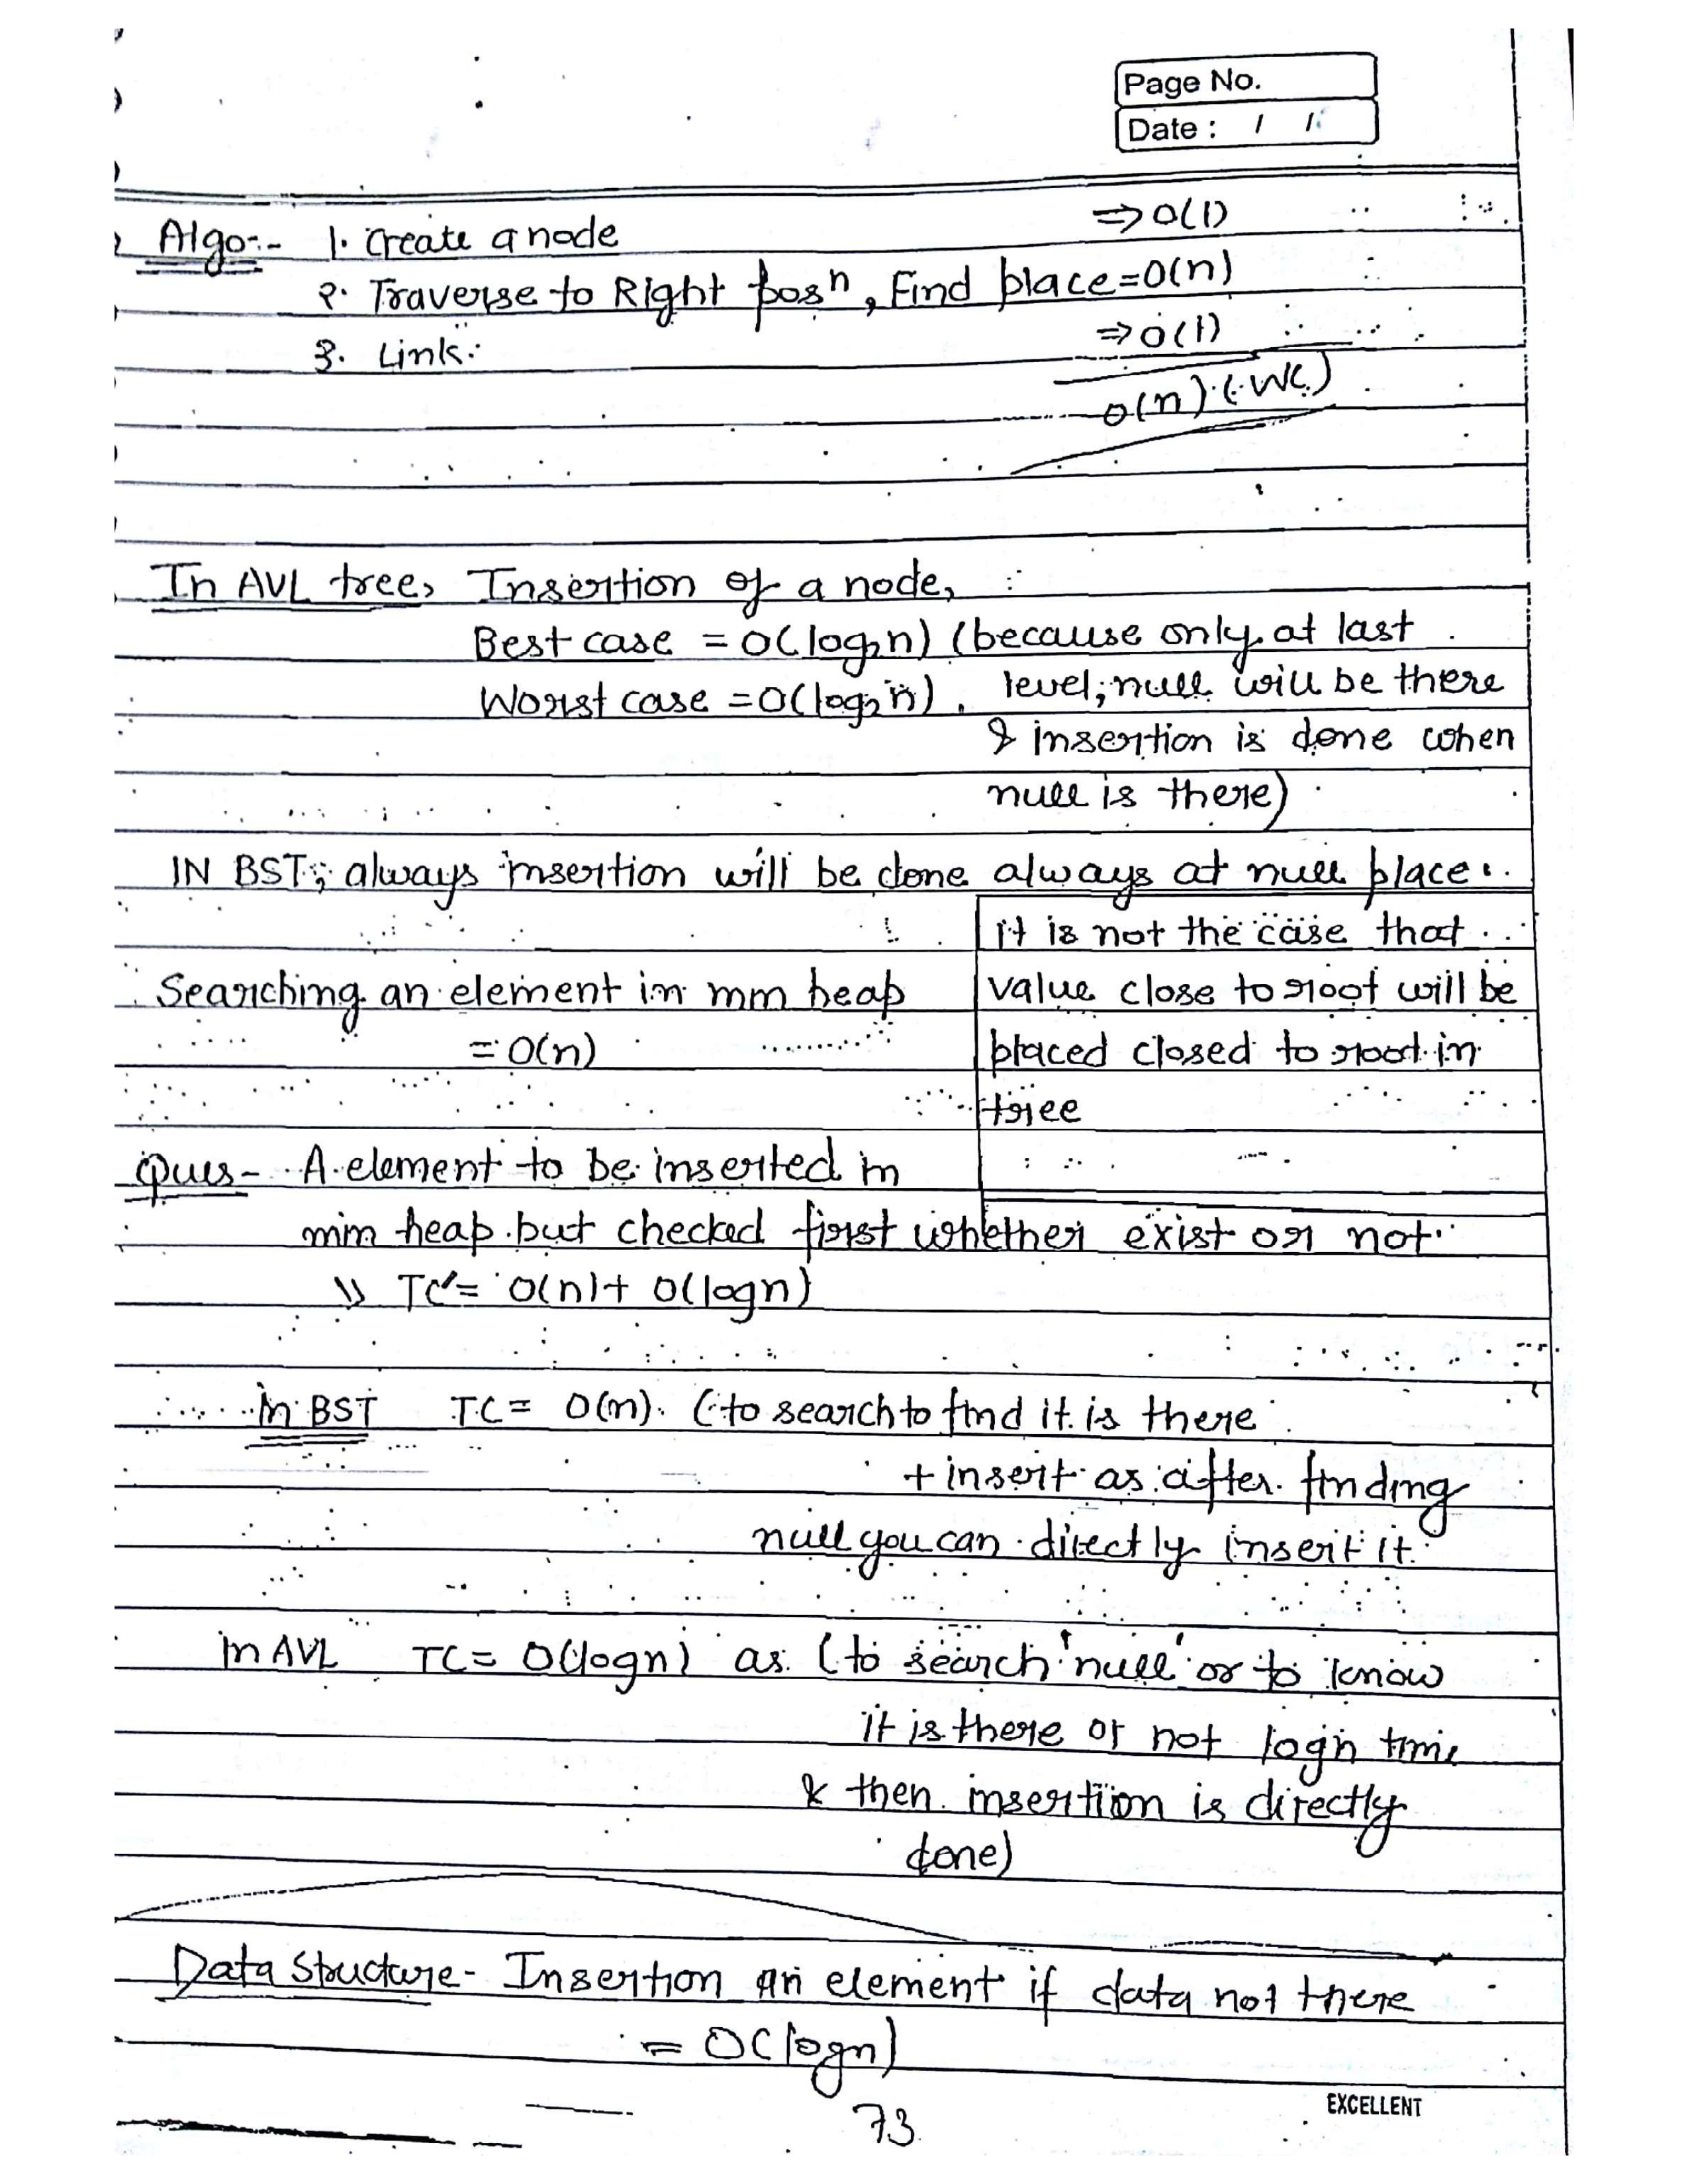 Page No.
Date : / /
Algo:- 1. Create a node ⇒ O(1)
2. Traverse to Right posn, Find place = O(n)
3. Link. ⇒ O(1)
O(n) (WC)
In AVL tree, Insertion of a node,
Best case = O(log₂n) (because only at last
Worst case = O(log₂n). level, null will be there
& insertion is done when
null is there)
IN BST; always insertion will be done always at null place.
it is not the case that
Searching an element in min heap value close to root will be
= O(n) placed closed to root in
tree
Ques- A element to be inserted in
min heap but checked first whether exist or not.
⇒ TC = O(n) + O(logn)
in BST TC = O(n). (to search to find it is there
+ insert as after finding
null you can directly insert it.
in AVL TC = O(logn) as (to search 'null' or to know
it is there or not logn time
& then insertion is directly
done)
Data Structure- Insertion an element if data not there
= O(logn)
73
EXCELLENT